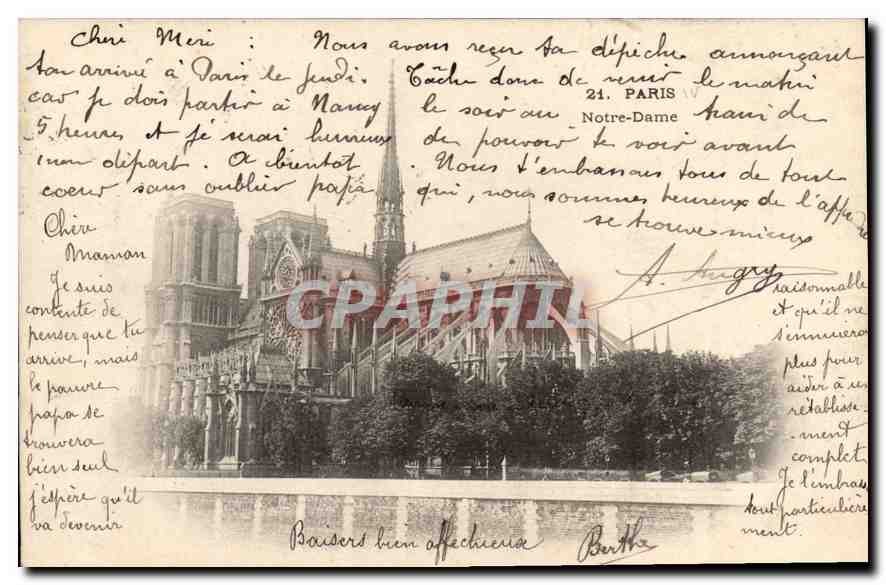 Cheri Meri : Nous avons reçu ta dépêche annonçant
ton arrivé à Paris le jeudi. Tâche donc de venir le matin
car je dois partir à Nancy le soir au train de
5 heures et je serai heureux de pouvoir te voir avant
mon départ. A bientôt. Nous t'embrassons tous de tout
coeur sans oublier papa qui, nous sommes heureux de l'apprendre
se trouve mieux
A. Angry
21. PARIS
Notre-Dame
Chère
Maman
Je suis
contente de
penser que tu
arrive, mais
le pauvre
papa se
trouvera
bien seul
j'espère qu'il
va devenir
raisonnable
et qu'il ne
s'ennuiera
plus pour
aider à un
rétablisse-
-ment
complet
Je l'embrasse
tout particulière
ment.
Baisers bien affectueux
Berthe
CPARHIL